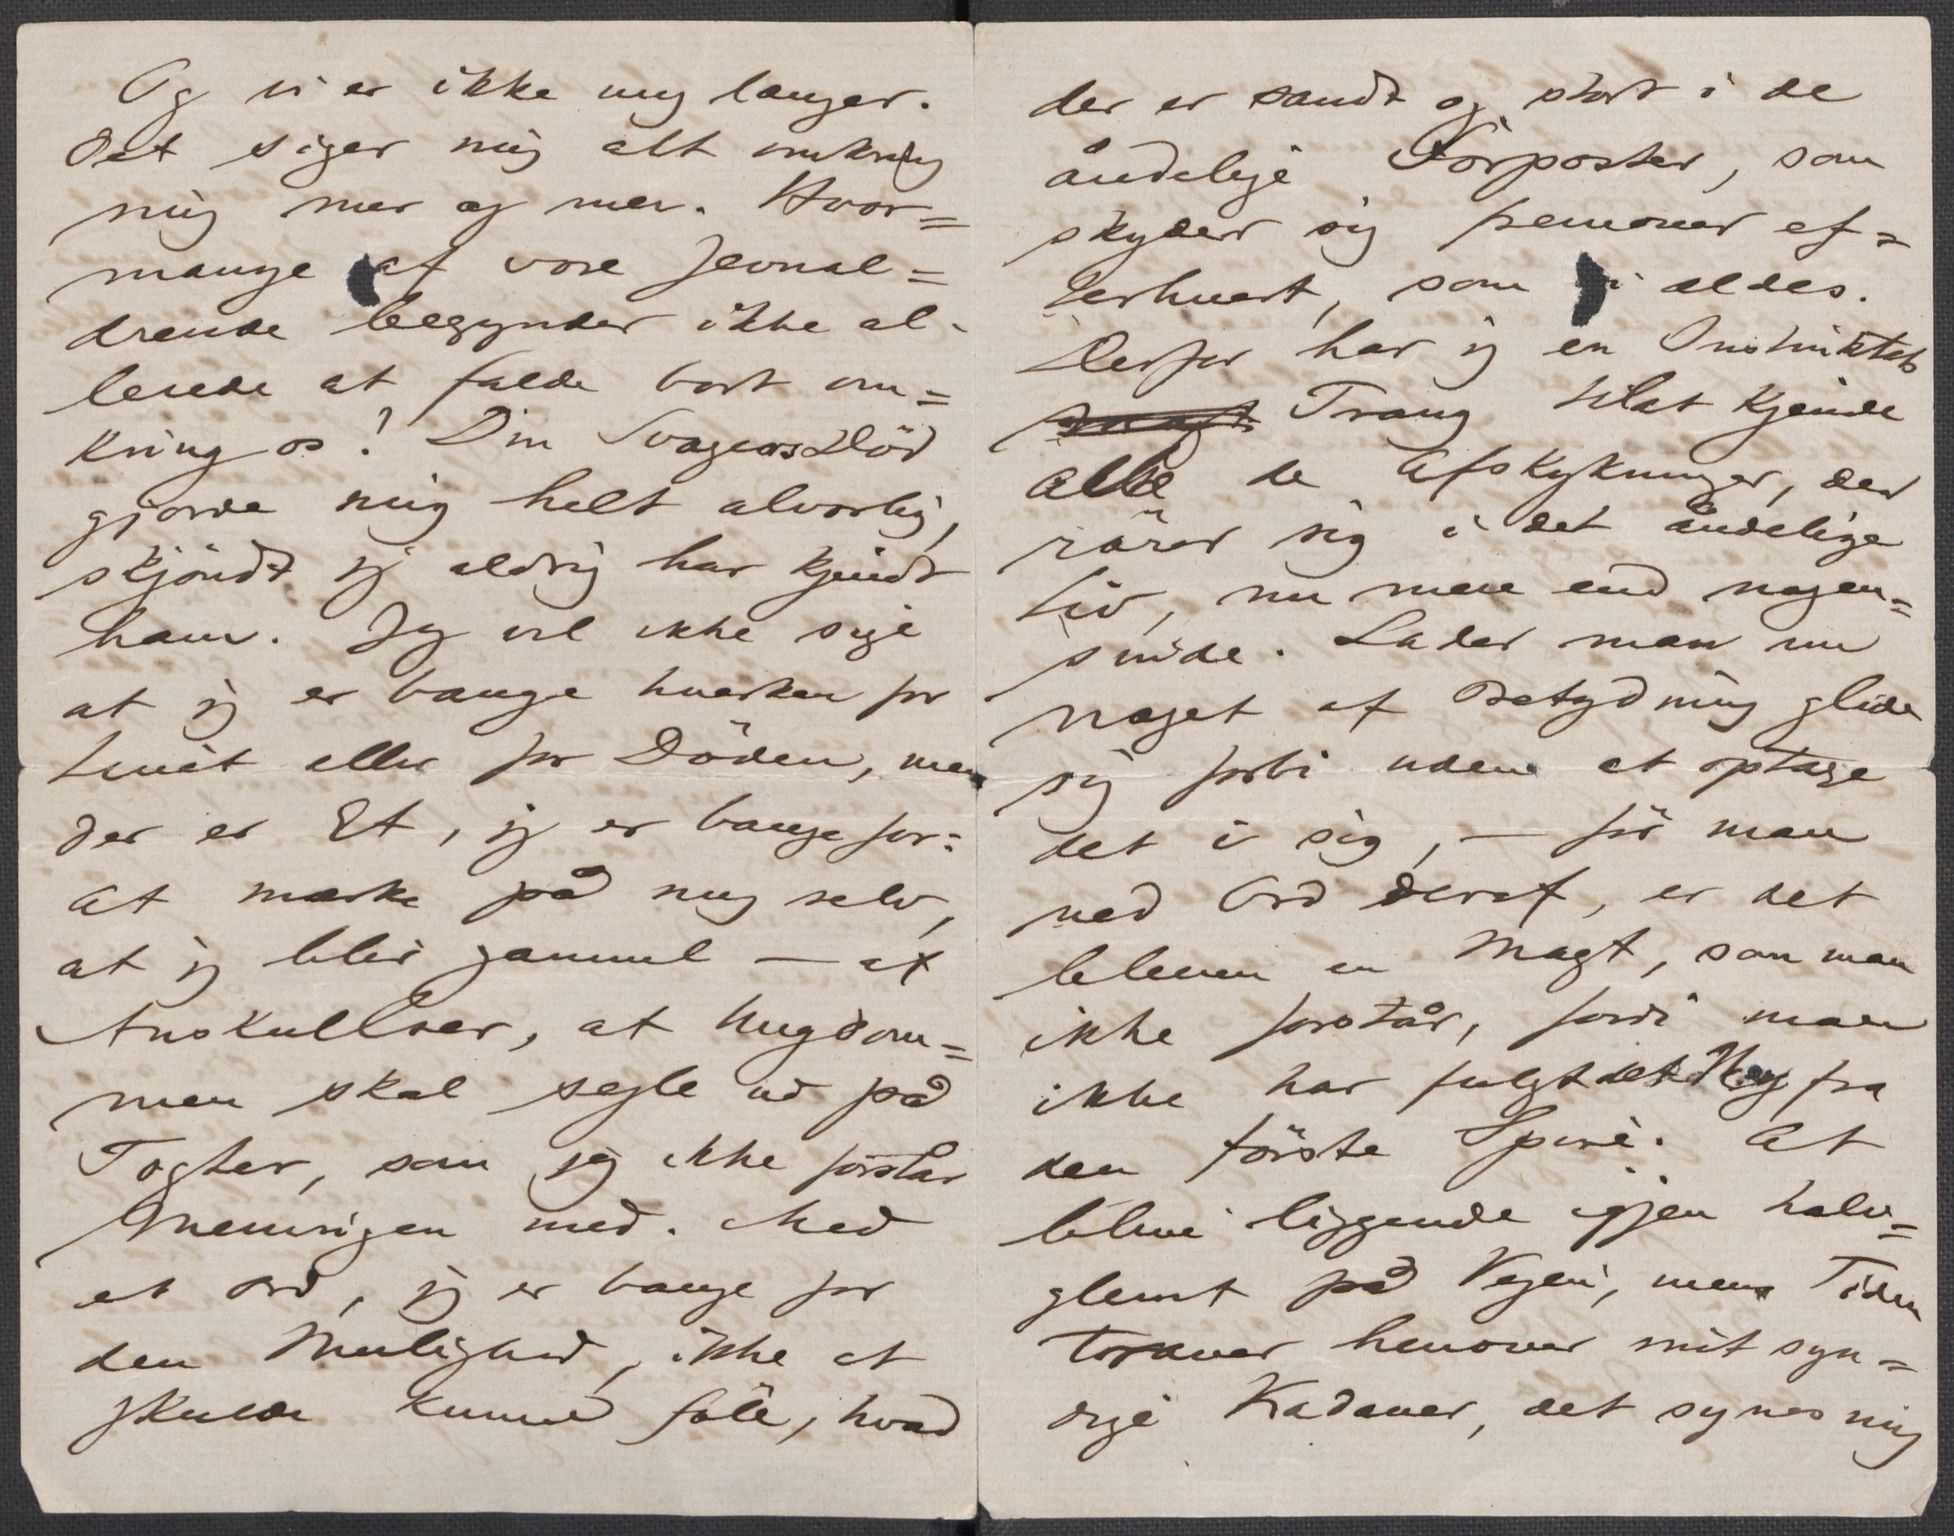 Og vi er ikke ung længer.
Det siger mig alt omkring
mig mer og mer. Hvor=
mange af vore Jevnal=
drende begynder ikke al-
lerede at falde bort om=
kring os! Din Svogers Död
gjorde mig helt alvorlig,
skjöndt jeg aldrig har kjendt
ham. Jeg vil ikke sige
at jeg er bange hverken for
Livet eller for Döden, men
der er Et, jeg er bange for:
At mærke på mig selv,
at jeg blir gammel — at
Anskuelser, at Ungdom=
men skal sejle ud på
Togter, som jeg ikke forstår
Meningen med. Med
et Ord, jeg er bange for
den Mulighed, ikke at
skulde kunne föle, hvad
der er sandt og stort i de
åndelige Forposter, som
skyder sig fremover ef=
terhvert, som vi ældes.
Derfor har jeg en Instinktets
Trang til at kjende
alle de Afskygninger, der
rörer sig i det åndelige
Liv, nu mere end nogen=
sinde. Lader man nu
noget af Betydning glide
sig forbi uden at optage
det i sig, — för man
ved Ord deraf, er det
bleven en Magt, som man
ikke forstår, fordi man
ikke har fulgt det fra
den förste Spire. At
blive liggende igjen halv=
glemt på Vejen, mens Tiden
traver henover mit syn=
dige Kadaver, det synes mig